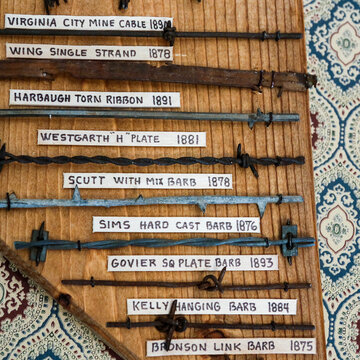 VIRGINIA CITY MINE CABLE 1890
WING SINGLE STRAND 1878
HARBAUGH TORN RIBBON 1891
WESTGARTH "H" PLATE 1881
SCUTT WITH MIX BARB 1878
SIMS HARD CAST BARB 1876
GOVIER SQ PLATE BARB 1893
KELLY HANGING BARB 1884
BRONSON LINK BARB 1875